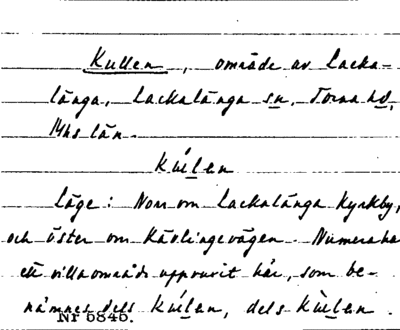 Kullen, område av Lacka-
länga, Lackalänga sn, Torna hd,
Mhs län.
Kúllen
Läge: Norr om Lackalänga Kyrkby,
och öster om Kävlingevägen. Numera ha
ett villaområde uppvuxit här, som be-
nämnes dels Kúllen, dels Kùllen.
Nr 5845.